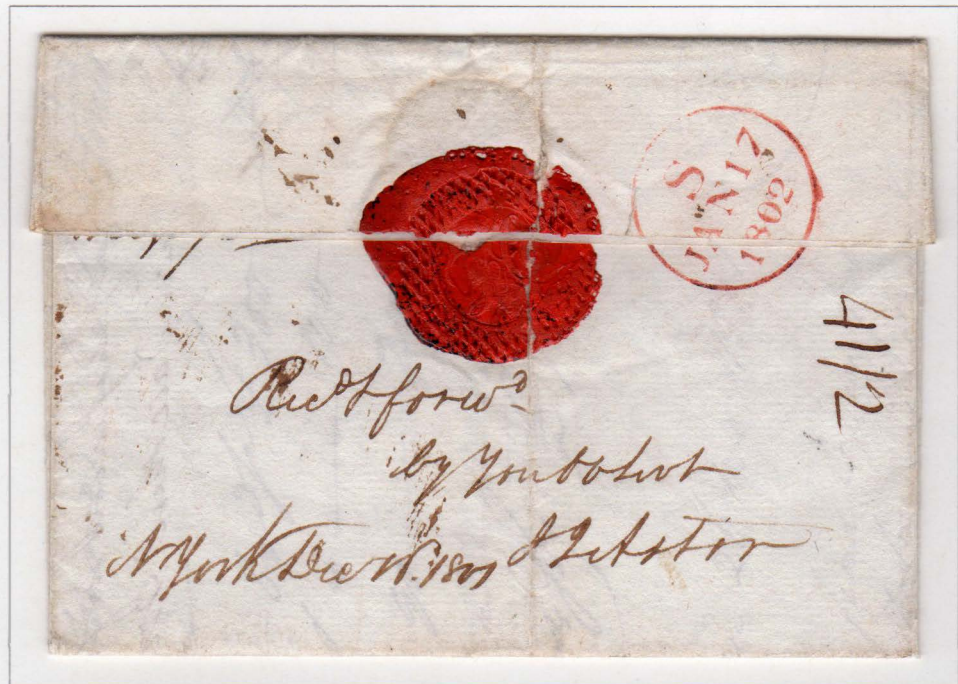 S
JAN 17
1802
4 1/2
Recd & forwd
by your ob Servt
NYork Dec 16. 1801 J J Astor